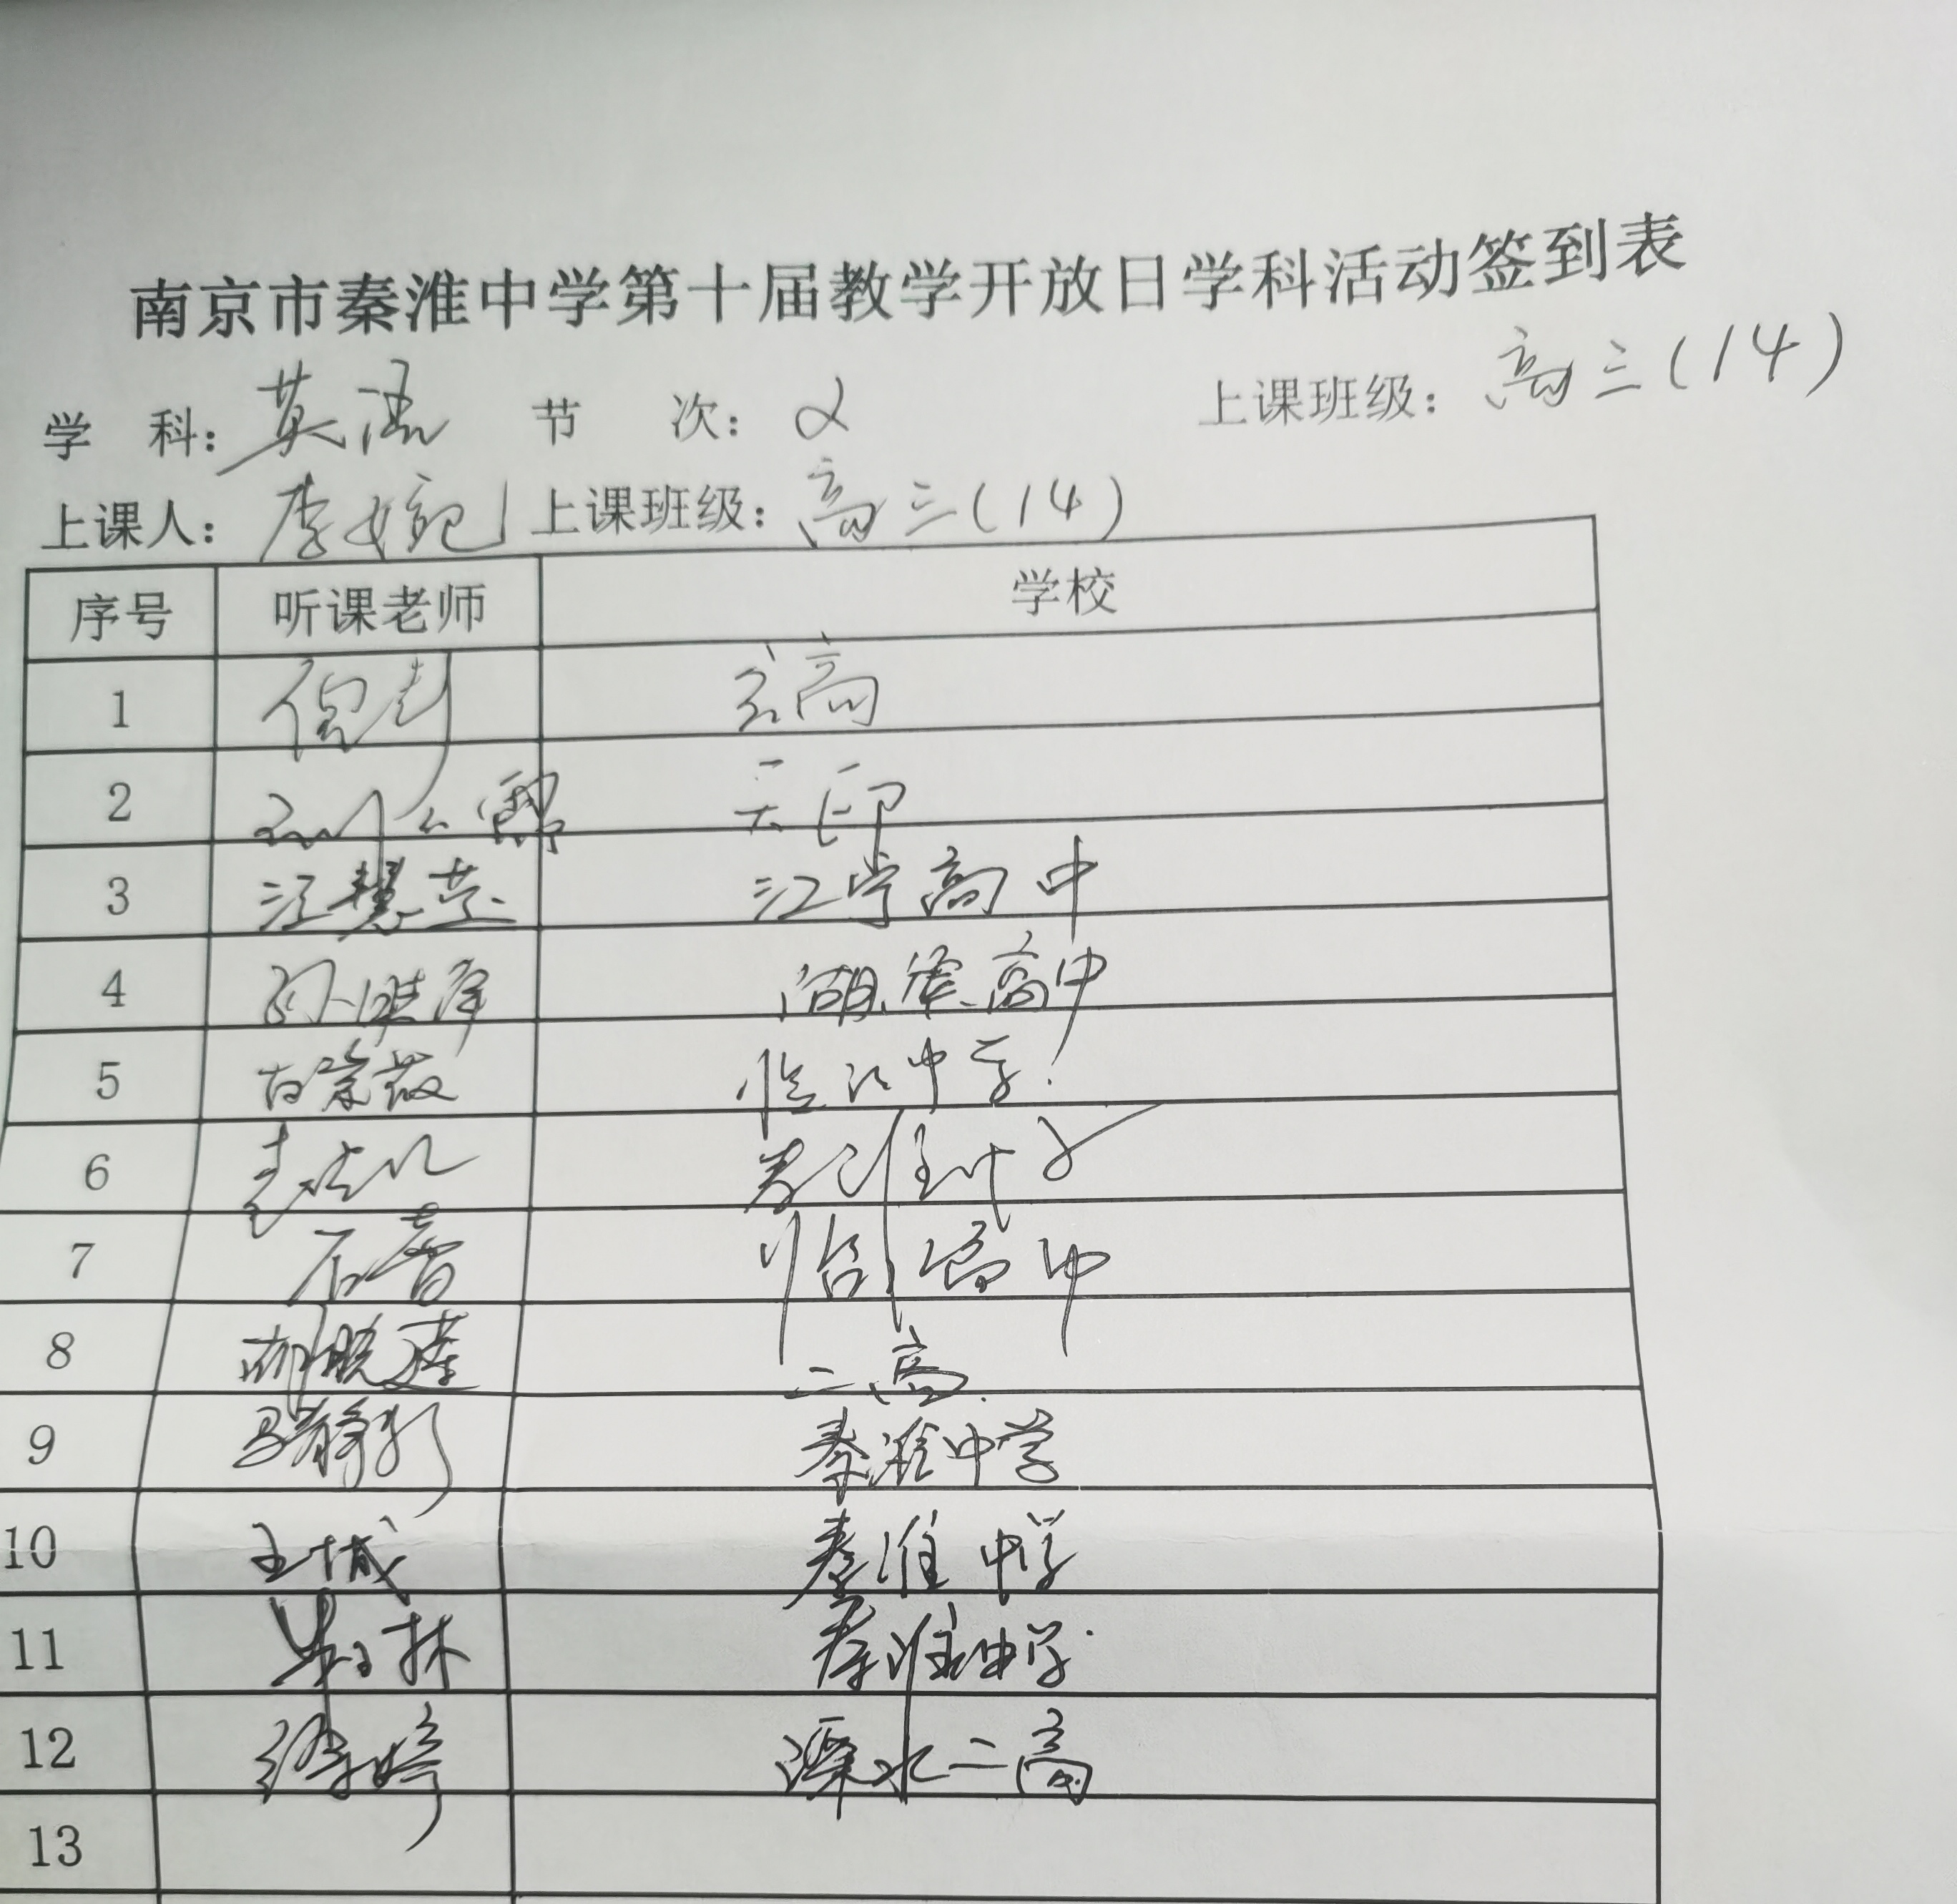 南京市秦淮中学第十届教学开放日学科活动签到表
学 科: 英语 节 次: 2 上课班级: 高三(14)
上课人: 李婉 上课班级: 高三(14)
序号 听课老师 学校
1 倪 玄高
2 天印
3 汪慧 江宁高中
4 孙 湖熟高中
5 临江中学
6 秦淮中学
7 石 高中
8 晓莲 二高
9 马静 秦淮中学
10 王城 秦淮中学
11 林 秦淮中学
12 徐婷 溧水二高
13